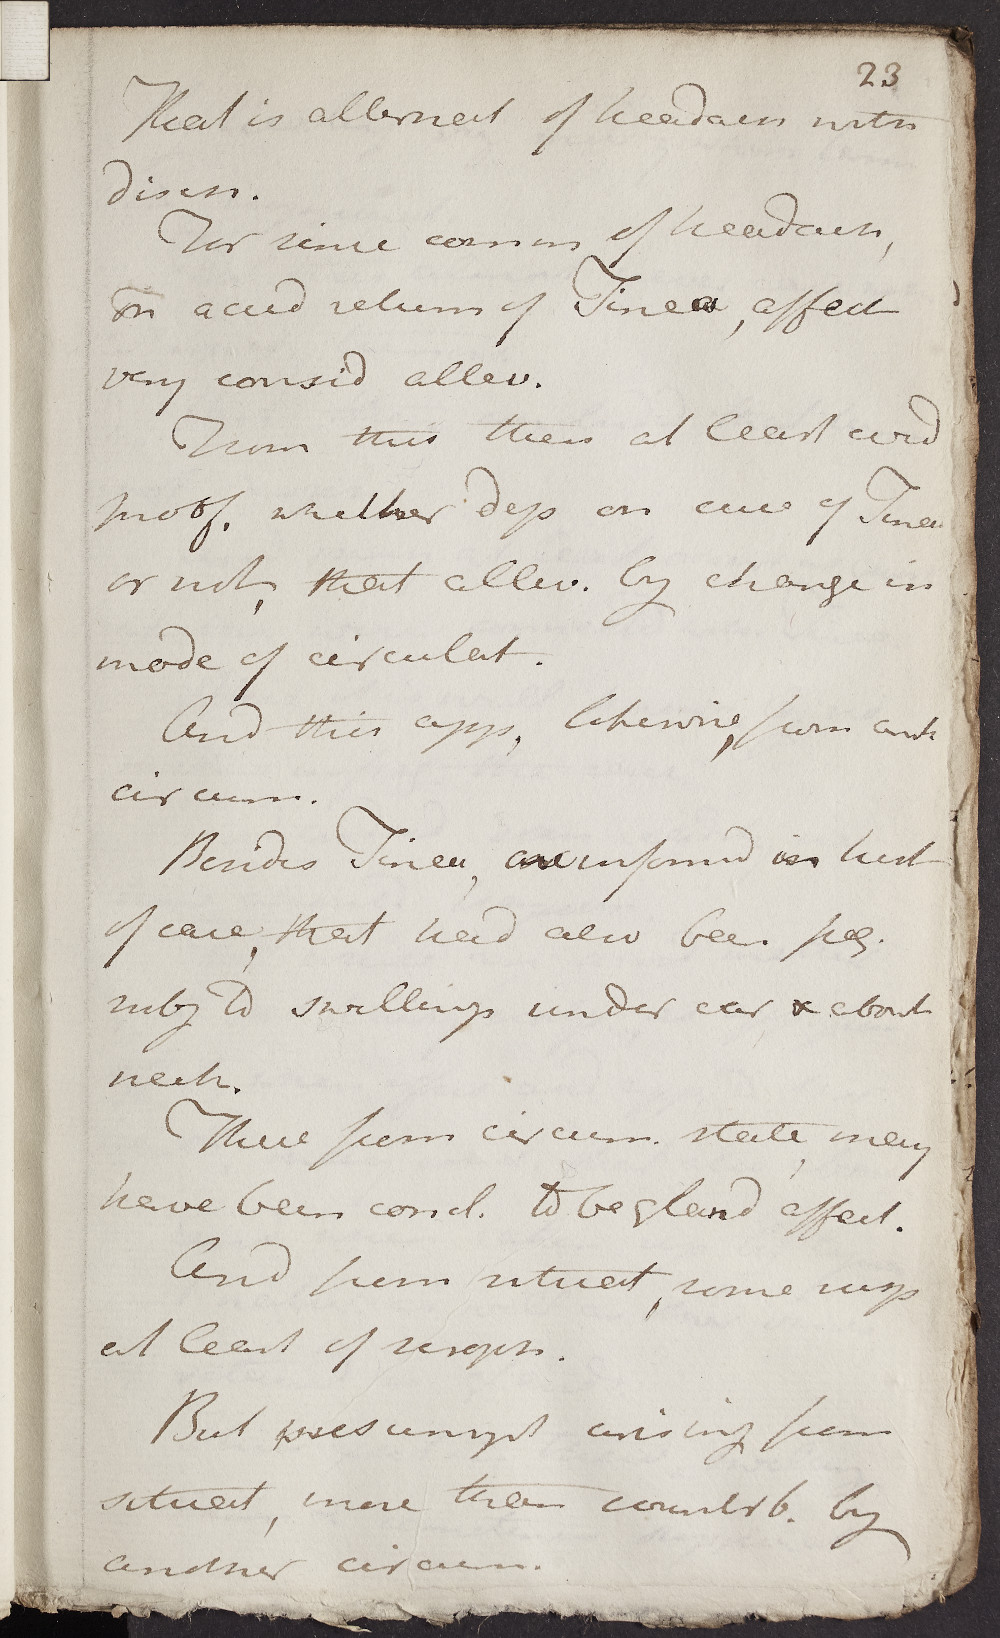 23
That is alternat of headach with
diseas.
For since commn of headach,
on accid return of Tinea, afford
very consid allev.
From this then at least cred
prob. whether dep on cure of Tinea
or not, that allev. by change in
mode of circulat.
And this app, likewise, from anoth
circum.
Besides Tinea, are informd in hist
of case, that had also been freq.
subj to swellings under ear & about
neck.
These from circum. state, may
have been concl. to be gland affect.
And from situat, some susp
at least of scroph.
But presumpt arising from
situat, more than countrb. by
another circum.